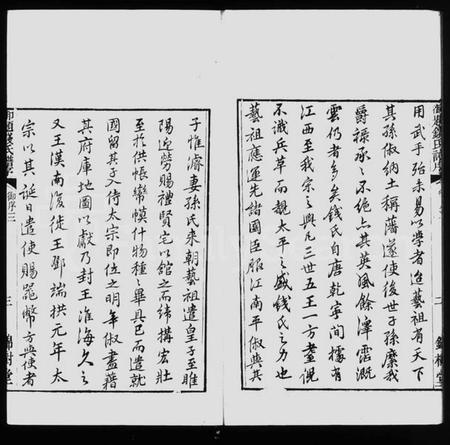 用武乎殆未易以學者迨藝祖有天下
其孫俶納土稱藩遂使後世子孫縻我
爵祿承承不絕亦其英風餘澤霑溉
雲仍者多矣錢氏自唐乾寧間據有
江西至我宗之興凡三世五王一方耋倪
不識兵革而覩太平之盛錢氏之力也
藝祖應運先諸國臣服江南平俶與其
子惟濬妻孫氏來朝藝祖遣皇子至睢
陽迎勞賜禮賢宅以館之而締構宏壯
至於供帳帟幙什物種種畢具已而遣就
國留其子入侍太宗即位之明年俶盡籍
其府庫地圖以獻乃封王淮海久之
又王漢南復徙王鄧端拱元年太
宗以其誕日遣使賜器幣方與使者
御序三
三
錦樹堂